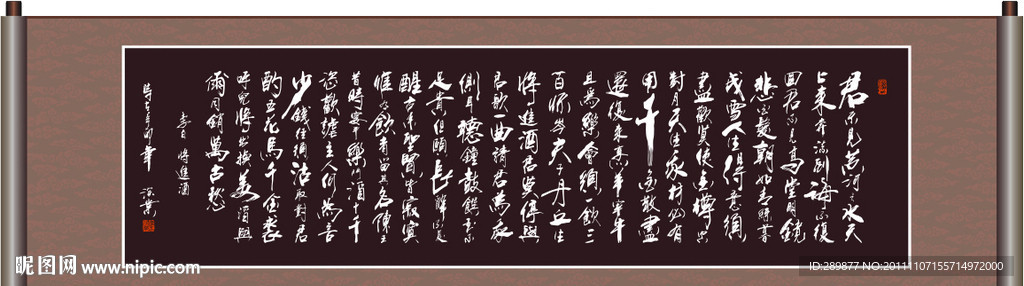 君不見黃河之水天
上來奔流到海不復
回君不見高堂明鏡
悲髮朝如青絲暮
成雪人生得意須
盡歡莫使金樽空
對月天生我材必有
用千金散盡
還復來烹羊宰牛
且為樂會須一飲三
百杯岑夫子丹丘生
將進酒君莫停與
君歌一曲請君為我
側耳聽鐘鼓饌玉不
足貴但願長醉不復
醒古來聖賢皆寂寞
惟有飲者留其名陳王
昔時宴平樂斗酒十千
恣歡謔主人何為言
少錢徑須沽取對君
酌五花馬千金裘
呼兒將出換美酒與
爾同銷萬古愁
李白 將進酒
昵图网 www.nipic.com
ID:289877 NO:20111107155714972000